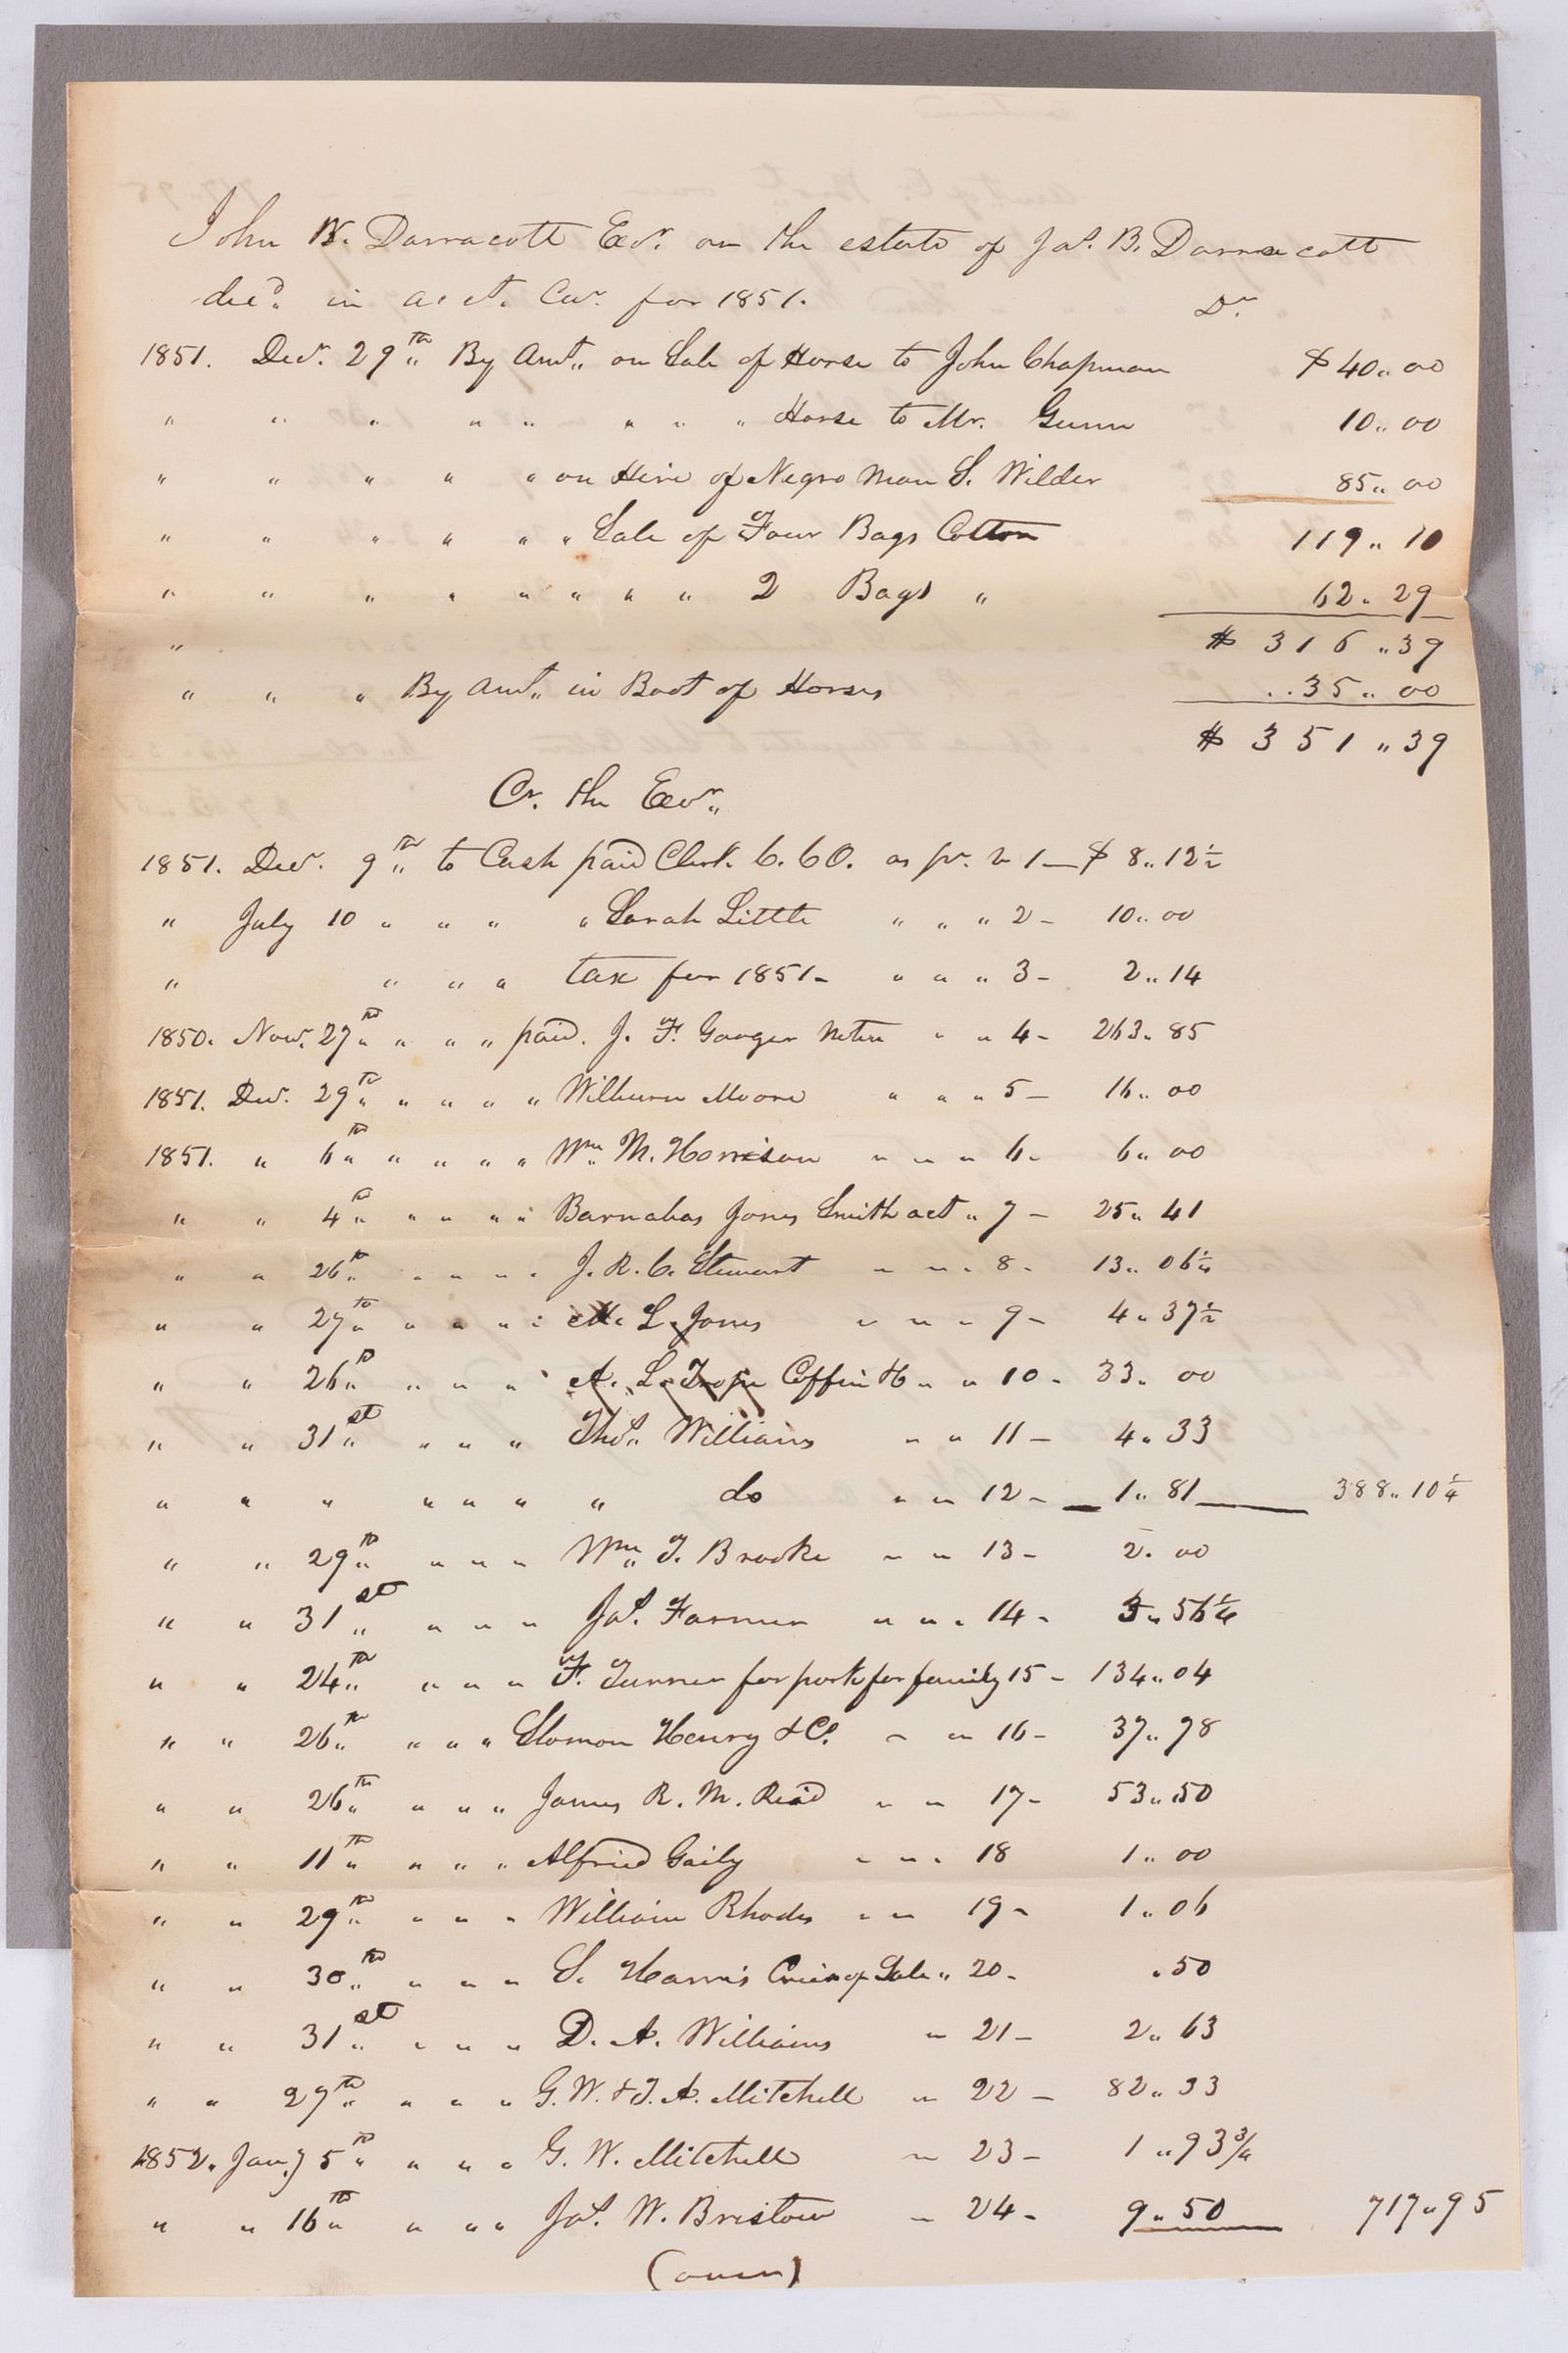 John W. Darracott Exr. on the estate of Jas. B. Darracott
decd. in acct. Cur. for 1851. Dr.
1851. Decr. 29th By Amt. on Sale of Horse to John Chapman $ 40.. 00
" " " " " " " " Horse to Mr. Gunn 10.. 00
" " " " " on Hire of Negro Man S. Wilder 85.. 00
" " " " " " Sale of Four Bags Cotton 119.. 10
" " " " " " " " 2 Bags " 62.. 29
" $ 316 .. 39
" " " By Amt. in Boot of Horses 35.. 00
$ 351 .. 39
Cr. the Exr.
1851. Decr. 9th to Cash paid Clerk C. C O. as pr. v 1 — $ 8.. 12½
" July 10 " " " " Sarah Little " " " 2 - 10.. 00
" " " " tax for 1851 - " " " 3 - 2.. 14
1850. Nov. 27th " " " paid. J. F. Googer Notes " " 4 - 263.. 85
1851. Decr. 29th " " " " Wilburn Moore " " " 5 - 16.. 00
1851. " 6th " " " " Wm. M. Horrison " " " 6 - 6.. 00
" " 4th " " " " Barnabas Jones Smith act " 7 - 25.. 41
" " 26th " " " " J. R. C. Stewart " " " 8 - 13.. 06¼
" " 27th " " " " M. L. Jones " " " 9 - 4.. 37½
" " 26th " " " A. L. Coffin H " " 10 - 33.. 00
" " 31st " " " Thos. Williams " " 11 - 4.. 33
" " " " " " " do " " 12 - 1.. 81 388.. 10¼
" " 29th " " " Wm. T. Brooke " " 13 - 2.. 00
" " 31st " " " Jas. Farmer " " " 14 - 5.. 56¼
" " 24th " " " F. Turner for pork for family 15 - 134.. 04
" " 26th " " " Slomon Henry & Co. " " 16 - 37.. 78
" " 26th " " " James R. M. Reid " " 17 - 53.. 50
" " 11th " " " Alfried Gaily " " " 18 1.. 00
" " 29th " " " William Rhodes " " 19 - 1.. 06
" " 30th " " " S. Harris Crier of Sale " 20 - .50
" " 31st " " " D. A. Williams " 21 - 2.. 63
" " 27th " " " G. W. & T. A. Mitchell " 22 - 82.. 33
1852. Jany 5th " " " G. W. Mitchell " 23 - 1 .. 93¾
" " 16th " " " Jas. W. Bristow " 24 - 9.. 50 717.. 95
(over)